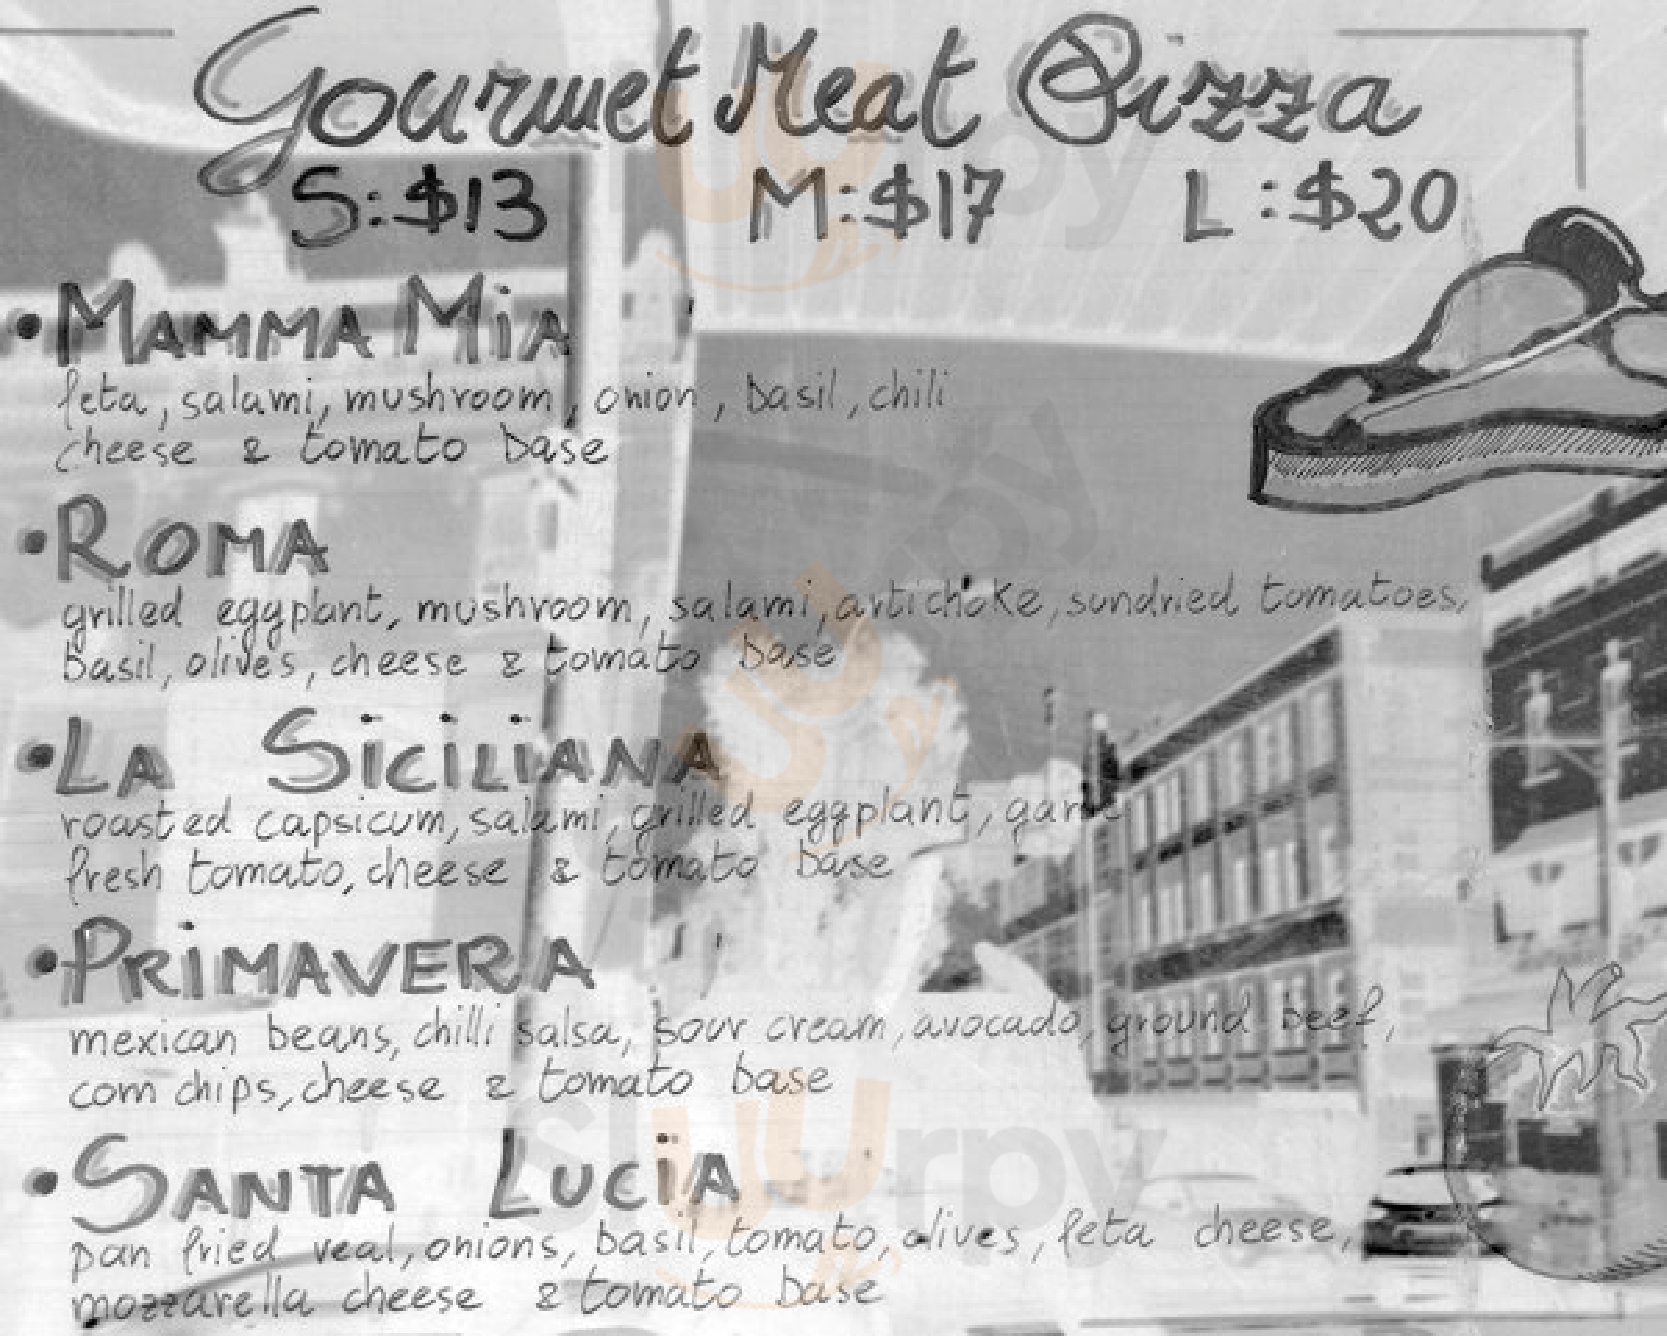 Gourmet Meat Pizza
S:$13 M:$17 L:$20
•MAMMA MiA
feta, salami, mushroom, onion, basil, chili
cheese & tomato base
•ROMA
grilled eggplant, mushroom, salami, artichoke, sundried tomatoes,
basil, olives, cheese & tomato base
•LA SiCiLiANA
roasted capsicum, salami, grilled eggplant,
fresh tomato, cheese & tomato base
•PRiMAVERA
mexican beans, chilli salsa, sour cream, avocado, ground beef,
corn chips, cheese & tomato base
•SANTA LUCiA
pan fried veal, onions, basil, tomato, olives, feta cheese,
mozzarella cheese & tomato base
sluurpy